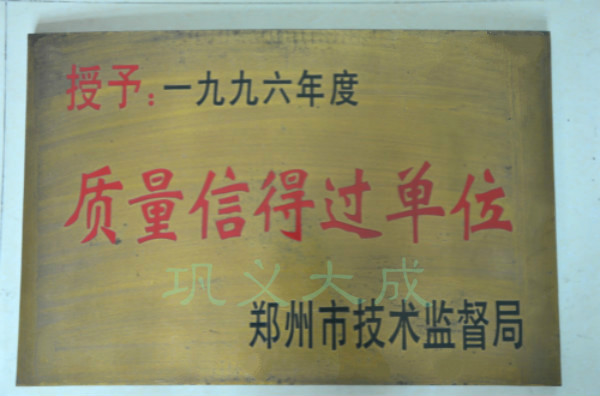 授予：一九九六年度
质量信得过单位
巩义大成
郑州市技术监督局